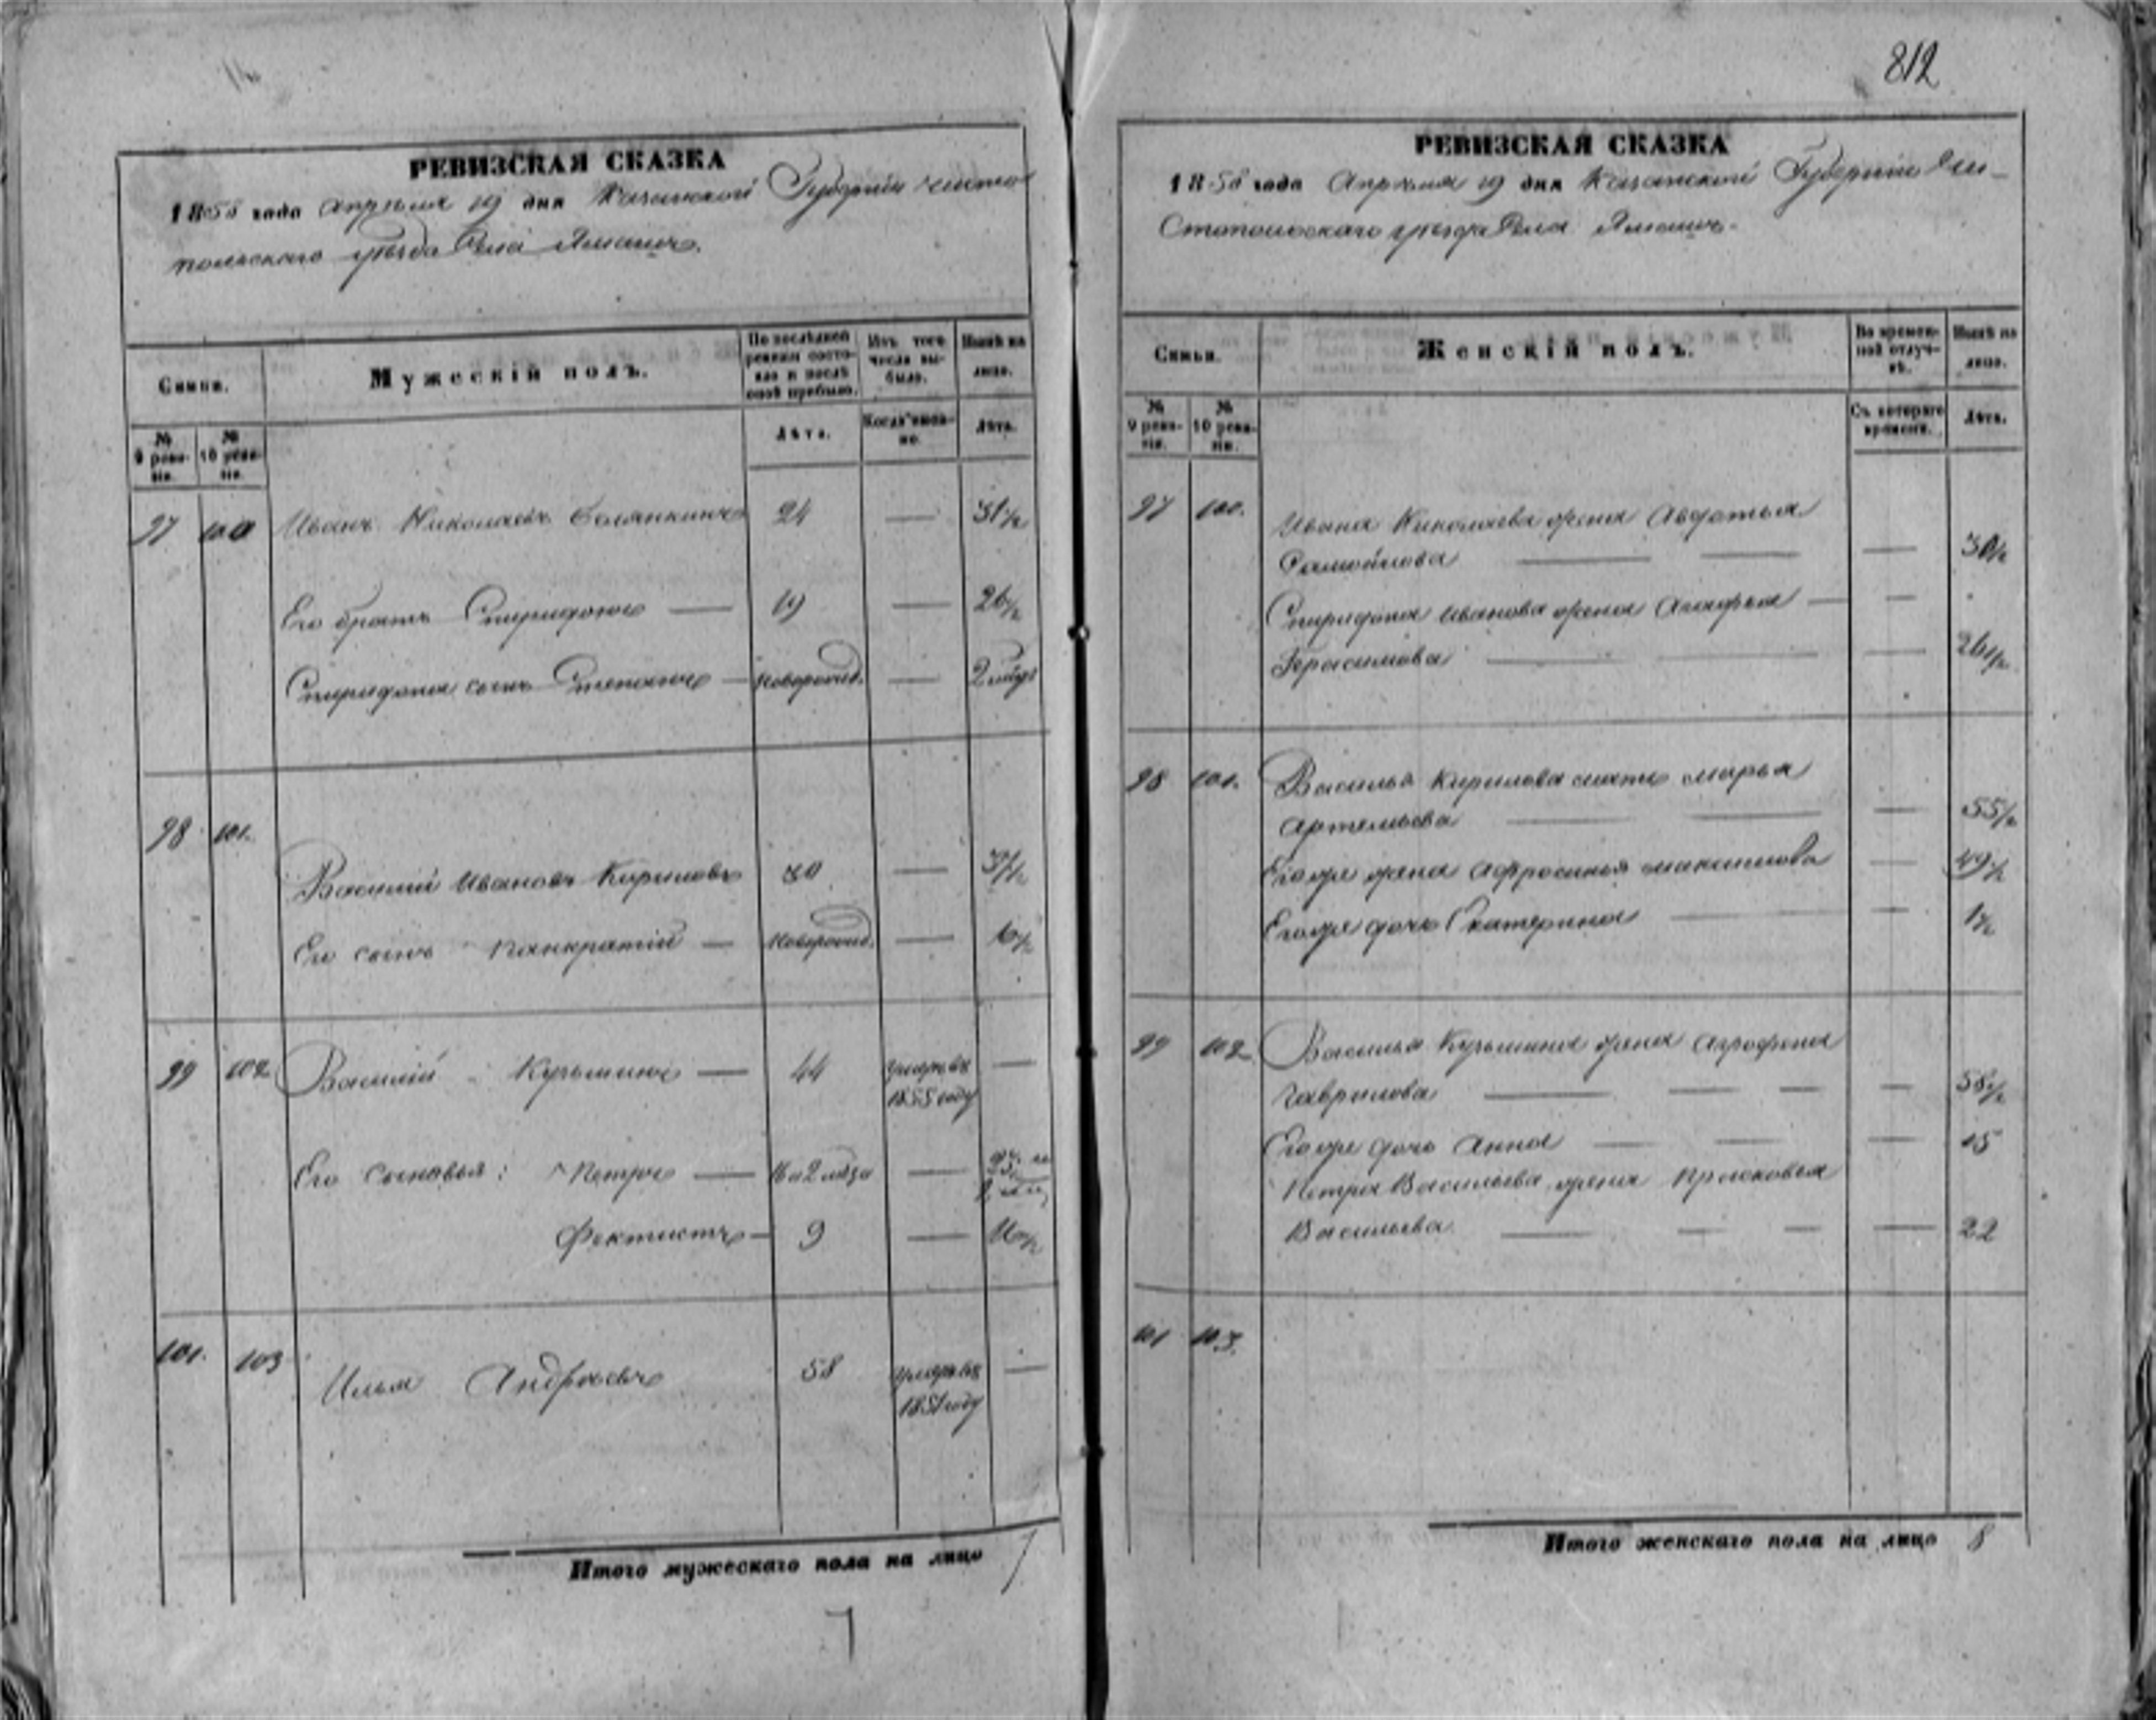 812
РЕВИЗСКАЯ СКАЗКА
1858 года Апреля 19 дня Казанской Губернии Чисто
польскаго уезда Села
Семьи.
Мужескій полъ.
По последней ревизіи состояло и после оной прибыло.
Изъ того числа выбыло.
Ныне на лицо.
№ 9 ревизіи.
№ 10 ревизіи.
Лѣта.
Когда именно.
Лѣта.
97 100 Иванъ Николаевъ 24 — 31½
Его братъ Спиридонъ — 19 — 26½
Спиридона сынъ Степанъ — новорожд. — 2
98 101. Василий Ивановъ Кириловъ 30 — 37½
Его сынъ Панкратій — новорожд. — 6½
99 102 Василій Кузьминъ — 44 умре въ —
1855 году
Его сыновья: Петръ — 16 —
Фектистъ — 9 — 16½
101. 103 Илья Андреевъ 58 умре въ —
1851 году
Итого мужескаго пола на лицо 7
7
РЕВИЗСКАЯ СКАЗКА
1858 года Апреля 19 дня Казанской Губерніи Чи-
стопольскаго уезда Села
Семьи.
Женскій полъ.
Во временной отлучкѣ.
Ныне на лицо.
№ 9 ревизіи.
№ 10 ревизіи.
Съ котораго времени.
Лѣта.
97 100. Ивана Николаева жена Авдотья
Самойлова — — — 30½
Спиридона Иванова жена Агафья — —
Герасимова — — — 26½
98 101. Василья Кирилова мать Марья
Артемьева — — — 55½
Егоже жена Афросинья Максимова — 49½
Егоже дочь Екатерина — — 1½
99 102 Василья Кузьмина жена Аграфена
Гаврилова — — — — 58½
Егоже дочь Анна — — — 15
Петра Васильева жена Прасковья
Васильева — — — — 22
101 103.
Итого женскаго пола на лицо 8